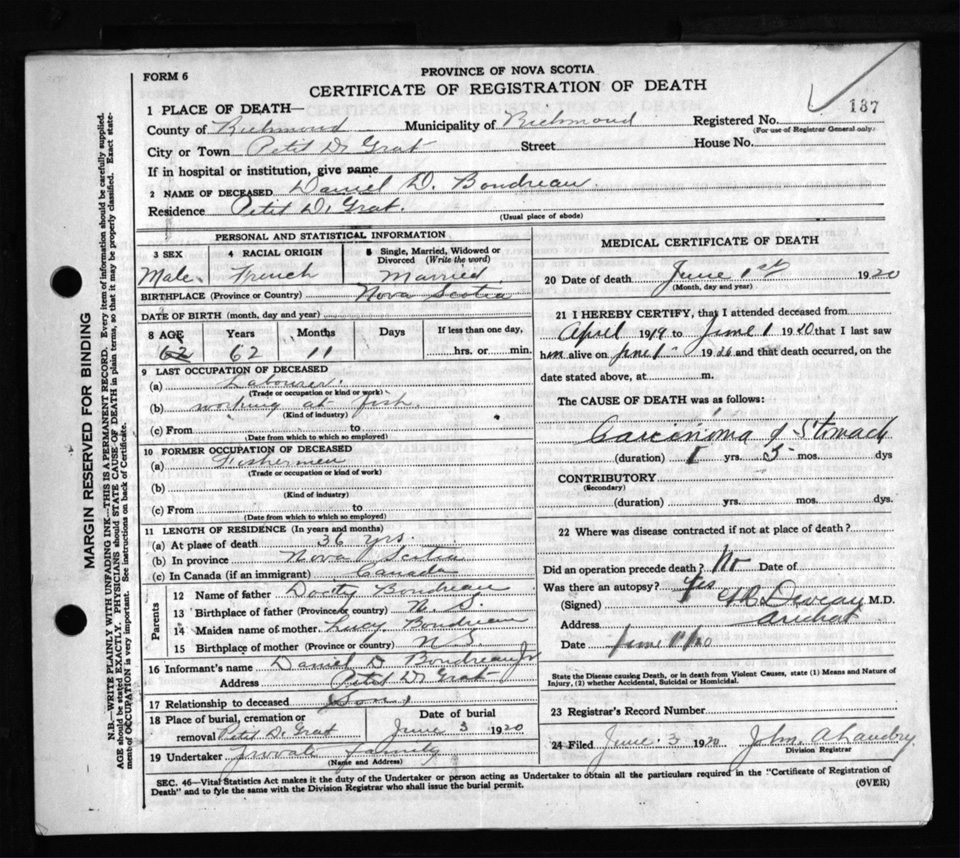 FORM 6
PROVINCE OF NOVA SCOTIA
CERTIFICATE OF REGISTRATION OF DEATH
137
1 PLACE OF DEATH—
County of Richmond Municipality of Richmond Registered No.
(For use of Registrar General only)
City or Town Petit D. Grat Street House No.
If in hospital or institution, give name
2 NAME OF DECEASED Daniel D. Boudreau.
Residence Petit D. Grat.
(Usual place of abode)
PERSONAL AND STATISTICAL INFORMATION
3 SEX 4 RACIAL ORIGIN 5 Single, Married, Widowed or Divorced (Write the word)
Male French Married
BIRTHPLACE (Province or Country) Nova Scotia
DATE OF BIRTH (month, day and year)
8 AGE Years Months Days If less than one day,
62 62 11 hrs. or min.
9 LAST OCCUPATION OF DECEASED
(a) Labourer.
(Trade or occupation or kind of work)
(b) working at fish.
(Kind of industry)
(c) From to
(Date from which to which so employed)
10 FORMER OCCUPATION OF DECEASED
(a) Fishermen
(Trade or occupation or kind of work
(b)
(Kind of industry)
(c) From to
(Date from which to which so employed)
11 LENGTH OF RESIDENCE (In years and months)
(a) At place of death 36 yrs.
(b) In province Nova Scotia
(c) In Canada (if an immigrant) Canada
Parents
12 Name of father Docty Boudreau
13 Birthplace of father (Province or country) N. S.
14 Maiden name of mother Lucy Boudreau
15 Birthplace of mother (Province or country) N S.
16 Informant's name Daniel D Boudreau Jr
Address Petit D. Grat
17 Relationship to deceased Son,
18 Place of burial, cremation or removal Petit D. Grat Date of burial June 3 1920
19 Undertaker Private family
(Name and Address)
MEDICAL CERTIFICATE OF DEATH
20 Date of death June 1st 1920
(Month, day and year)
21 I HEREBY CERTIFY, that I attended deceased from
April 1919 to June 1 1920 that I last saw
him alive on June 1 1920 and that death occurred, on the
date stated above, at m.
The CAUSE OF DEATH was as follows:
Carcinoma of Stomach
(duration) 1 yrs. 5 mos. dys
CONTRIBUTORY
(Secondary)
(duration) yrs. mos. dys.
22 Where was disease contracted if not at place of death?
Did an operation precede death? No Date of
Was there an autopsy? Yes
(Signed) M.D.
Address Arichat
Date June 1 1920
State the Disease causing Death, or in death from Violent Causes, state (1) Means and Nature of
Injury, (2) whether Accidental, Suicidal or Homicidal.
23 Registrar's Record Number
24 Filed June 3 1920 John
Division Registrar
SEC. 46—Vital Statistics Act makes it the duty of the Undertaker or person acting as Undertaker to obtain all the particulars required in the "Certificate of Registration of
Death" and to fyle the same with the Division Registrar who shall issue the burial permit.
(OVER)
MARGIN RESERVED FOR BINDING
N.B.—WRITE PLAINLY WITH UNFADING INK—THIS IS A PERMANENT RECORD. Every item of information should be carefully supplied.
AGE should be stated EXACTLY. PHYSICIANS should STATE CAUSE OF DEATH in plain terms, so that it may be properly classified. Exact state-
ment of OCCUPATION is very important. See instructions on back of Certificate.